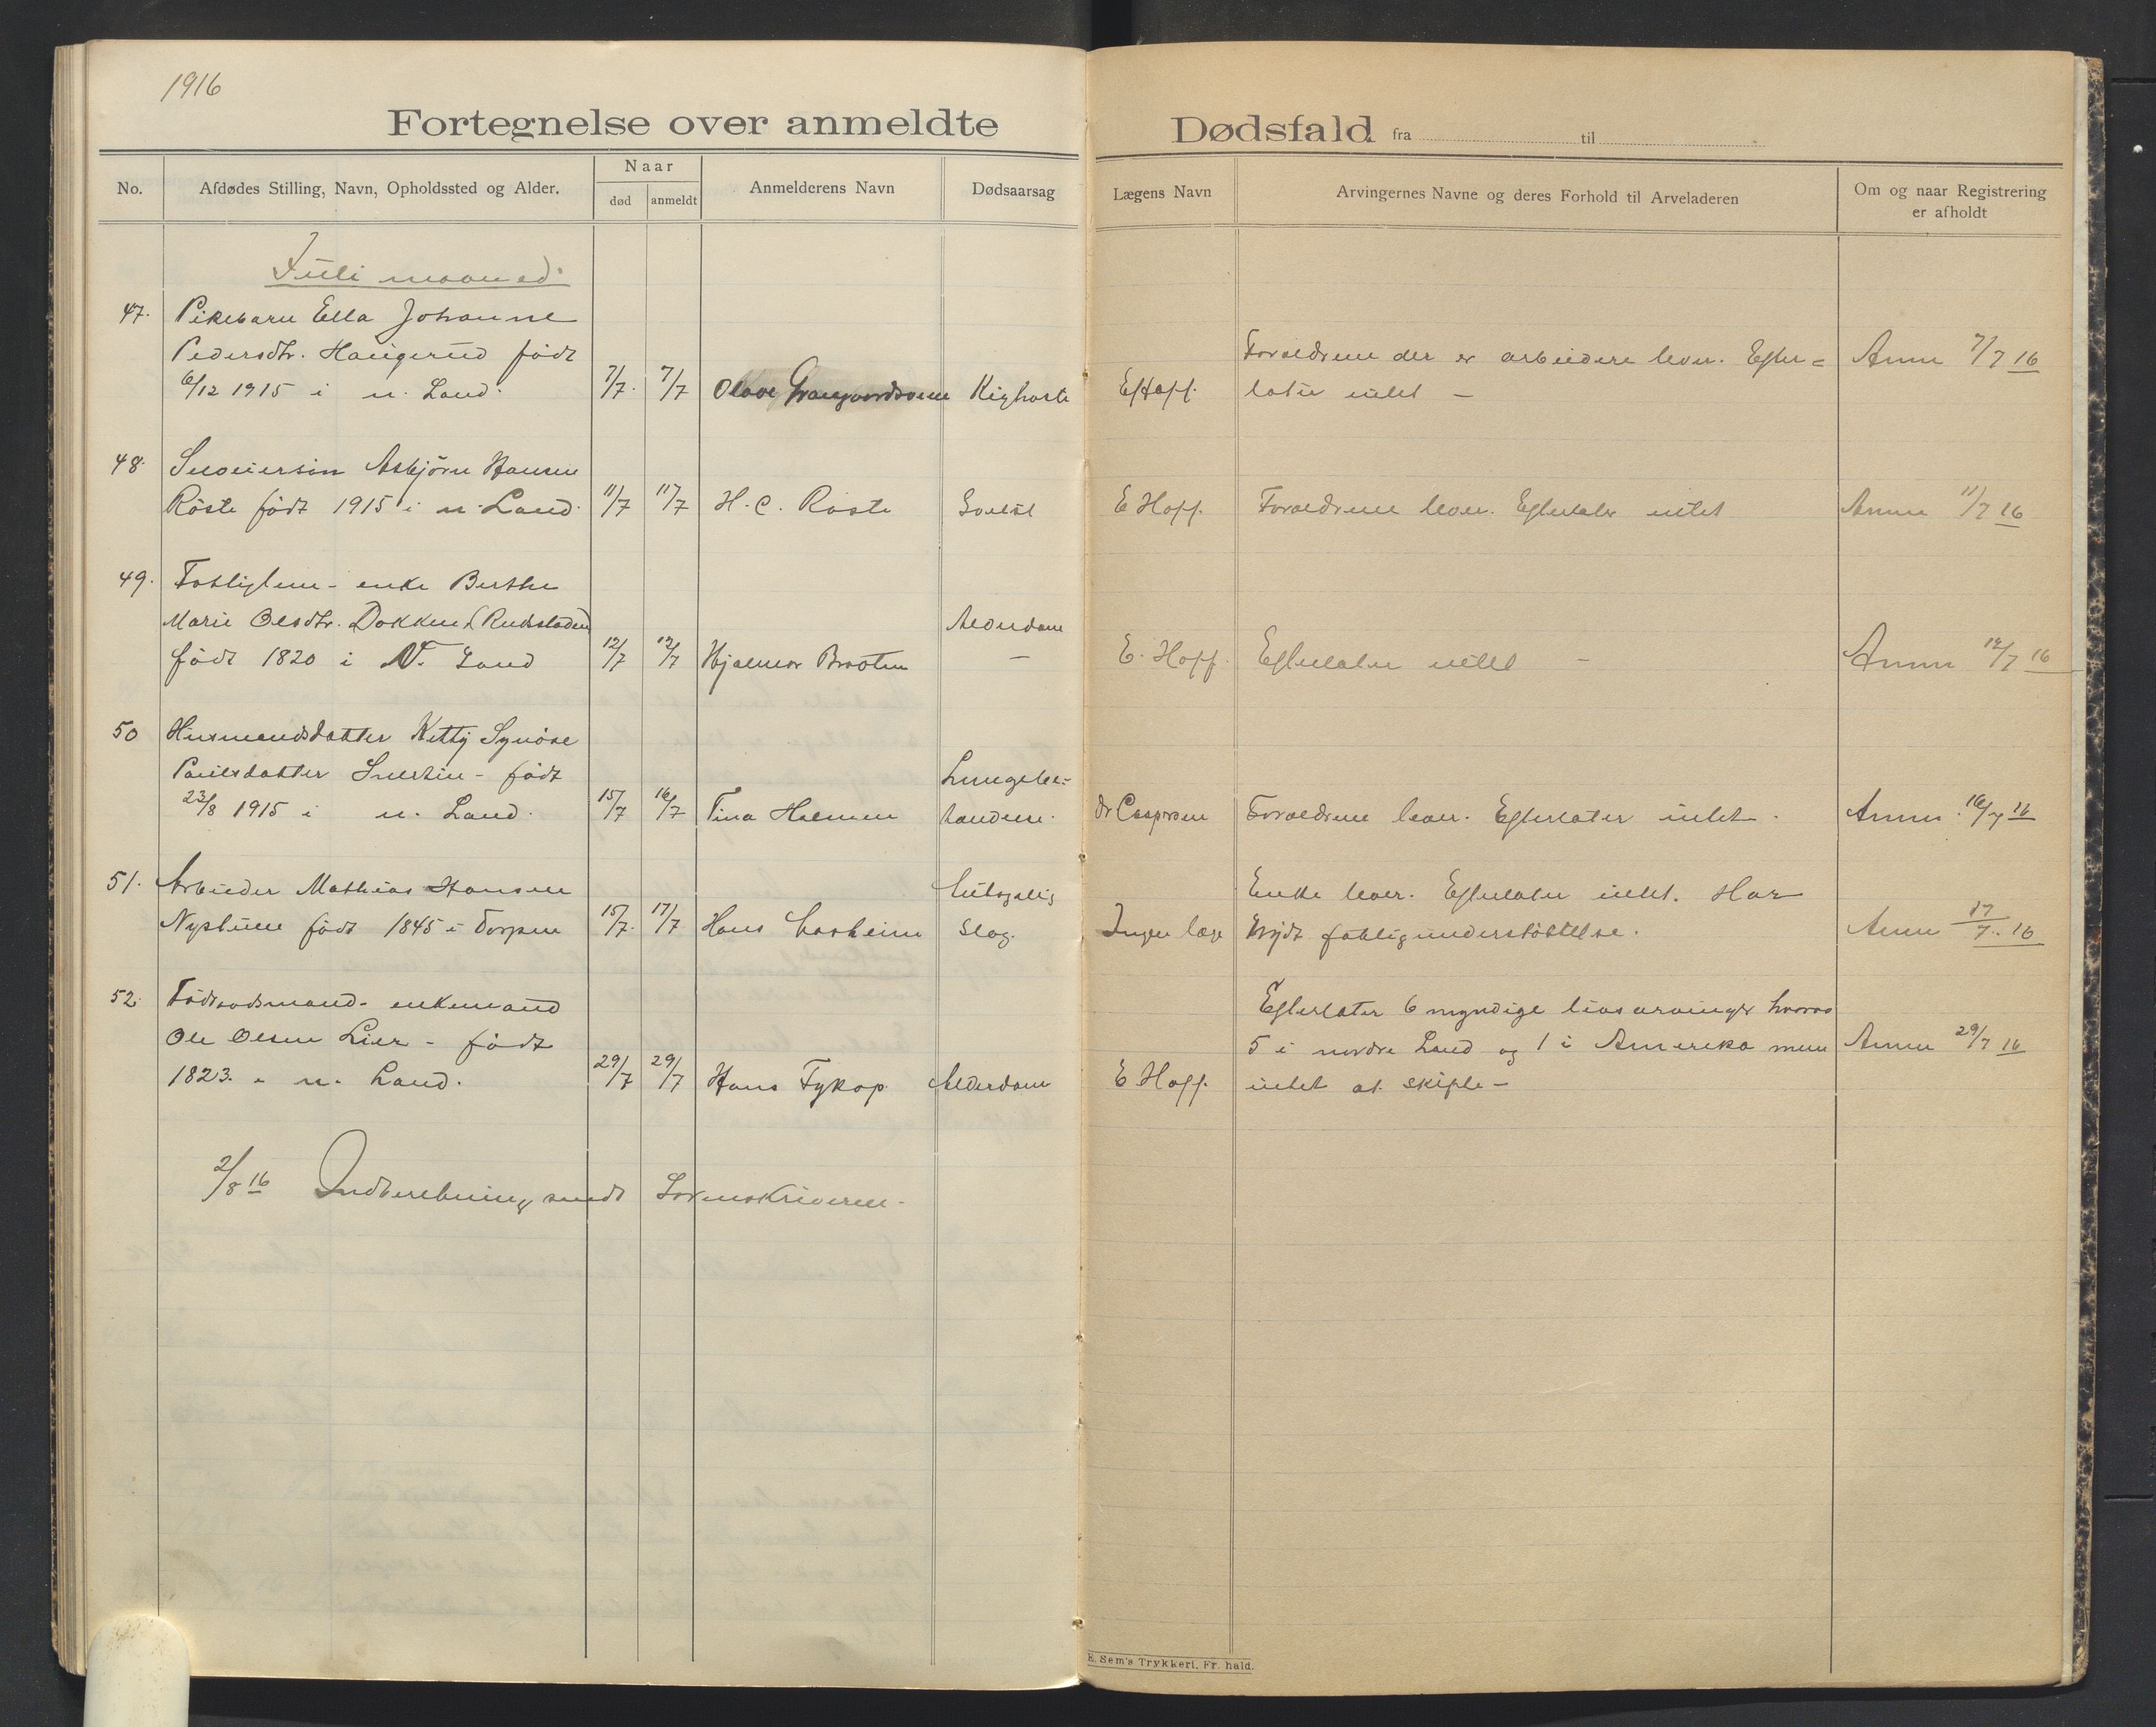 1916
Fortegnelse over anmeldte Dødsfald fra til
No. Afdødes Stilling, Navn, Opholdssted og Alder. Naar død anmeldt Anmelderens Navn Dødsaarsag Lægens Navn Arvingernes Navne og deres Forhold til Arveladeren Om og naar Registrering er afholdt
Juli maaned
47. Pikebarn Ella Johanne
Pedersdtr. Haugerud født Forældrene der er arbeidere lever. Efter= Anm 7/7 16
6/12 1915 i n. Land. 7/7. 7/7 Olave Kighoste E Hoff. later intet –
48. Asbjørn Hansen
Røste født 1915 i n. Land. 11/7 11/7 H. C. Røste E Hoff. Forældrene lever. Efterlater intet Anm 11/7 16
49. Fattiglem - enke Berthe
Marie Olsdtr. Dokken Alderdom
født 1820 i N. Land 12/7 12/7 Hjalmar Braaten – E. Hoff. Efterlater intet – Anm 12/7 16
50 Husmandsdatter Ketty Synøve
Paulsdatter født Lungebe=
23/8 1915 i n. Land. 15/7 16/7 Tina Halmen tændelse. dr Caspersen Forældrene lever. Efterlater intet. Anm. 16/7 16
51. Arbeider Mathias Hansen Antagelig Enke lever. Efterlater intet. Har
Nystuen født 1845 i Torpen 15/7. 17/7 Hans Aasheim Slag. Ingen læge nydt fattigunderstøttelse. Anm 17/7. 16
52. Føderaadsmand - enkemand Efterlater 6 myndige livsarvinger hvorav
Ole Olsen Lier - født 5 i nordre Land og 1 i Amerika men Anm 29/7 16
1823. i n. Land. 29/7 29/7 Hans Fykop. Alderdom E Hoff. intet at skifte –
2/8 16 Indberetning sendt Sorenskriveren.
E. Sem's Trykkeri, Fr. hald.